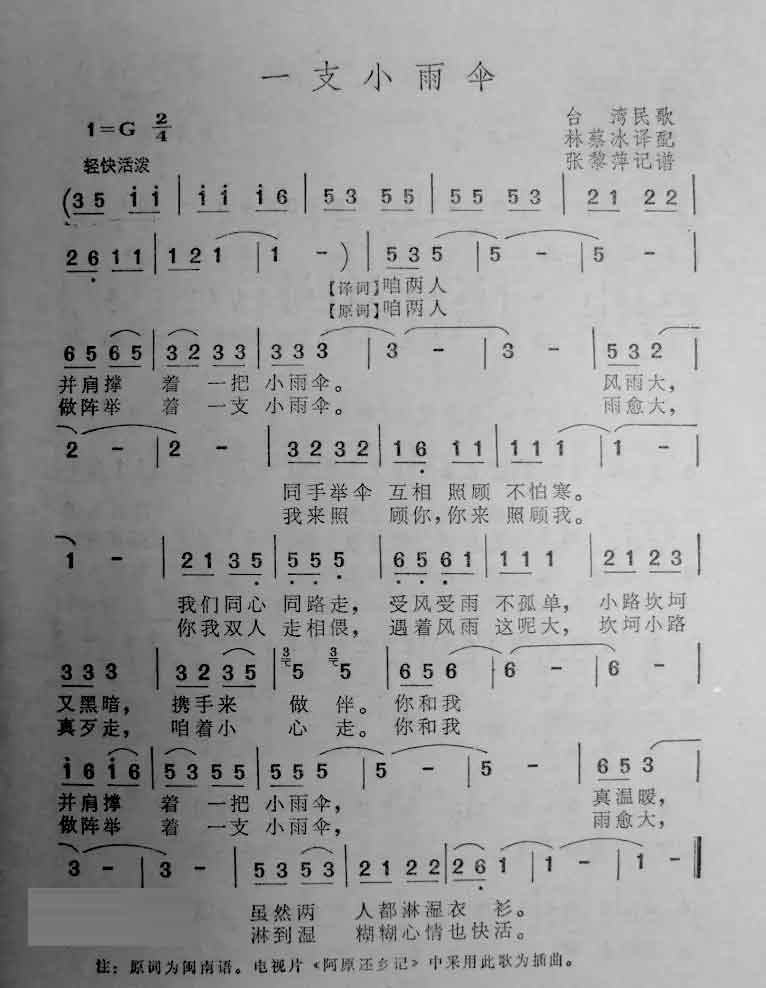 一支小雨伞
1=G 2/4
台 湾民歌
林蔡冰译配
轻快活泼
张黎萍记谱
(35 11 | 11 16 | 53 55 | 55 53 | 21 22 |
26 11 | 121 | 1 - ) | 535 | 5 - | 5 -
【译词】咱两人
【原词】咱两人
65 65 | 32 33 | 333 | 3 - | 3 - | 532 |
并肩撑 着 一把 小雨伞。 风雨大,
做阵举 着 一支 小雨伞。 雨愈大,
2 - | 2 - | 32 32 | 16 11 | 111 | 1 -
同手举伞 互相 照顾 不怕寒。
我来照 顾你,你来 照顾我。
1 - | 21 35 | 555 | 65 61 | 111 | 21 23 |
我们同心 同路走, 受风受雨 不孤单, 小路坎坷
你我双人 走相偎, 遇着风雨 这呢大, 坎坷小路
333 | 32 35 | 35 35 | 656 | 6 - | 6 -
又黑暗, 携手来 做 伴。你和我
真歹走, 咱着小 心 走。你和我
16 16 | 53 55 | 555 | 5 - | 5 - | 653 |
并肩撑 着 一把 小雨伞, 真温暖,
做阵举 着 一支 小雨伞, 雨愈大,
3 - | 3 - | 53 53 | 21 22 | 26 1 | 1 - | 1 -
虽然两 人都淋湿衣 衫。
淋到湿 糊糊心情也快活。
注:原词为闽南语。电视片《阿原还乡记》中采用此歌为插曲。